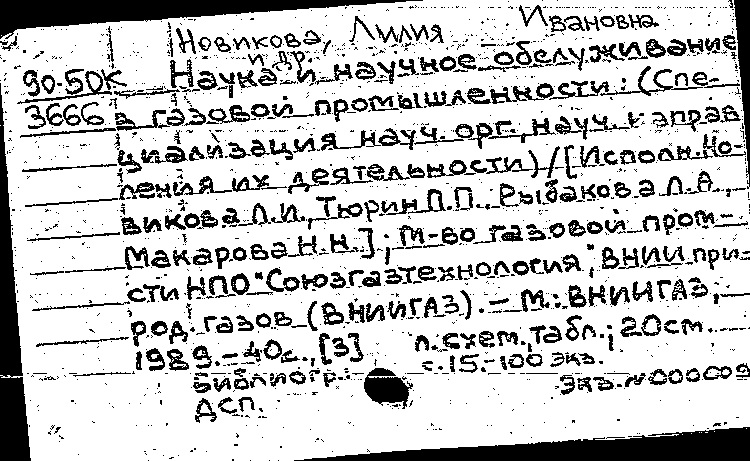 Новикова, Лилия Ивановна
и др.
90-50К Наука и научное обслуживание
3666 в газовой промышленности: (Спе-
циализация науч. орг., науч. направ
ления их деятельности)/[Исполн. Но-
викова Л.И., Тюрин П.П., Рыбакова Л.А.,
Макарова Н.Н.]; М-во газовой пром-
сти НПО "Союзгазтехнология", ВНИИ при-
род. газов (ВНИИГАЗ). – М.: ВНИИГАЗ,
1989. – 40с., [3] л.схем., табл.; 20см.
Библиогр.: с.15. – 100 экз.
ДСП. Экз. № 000009